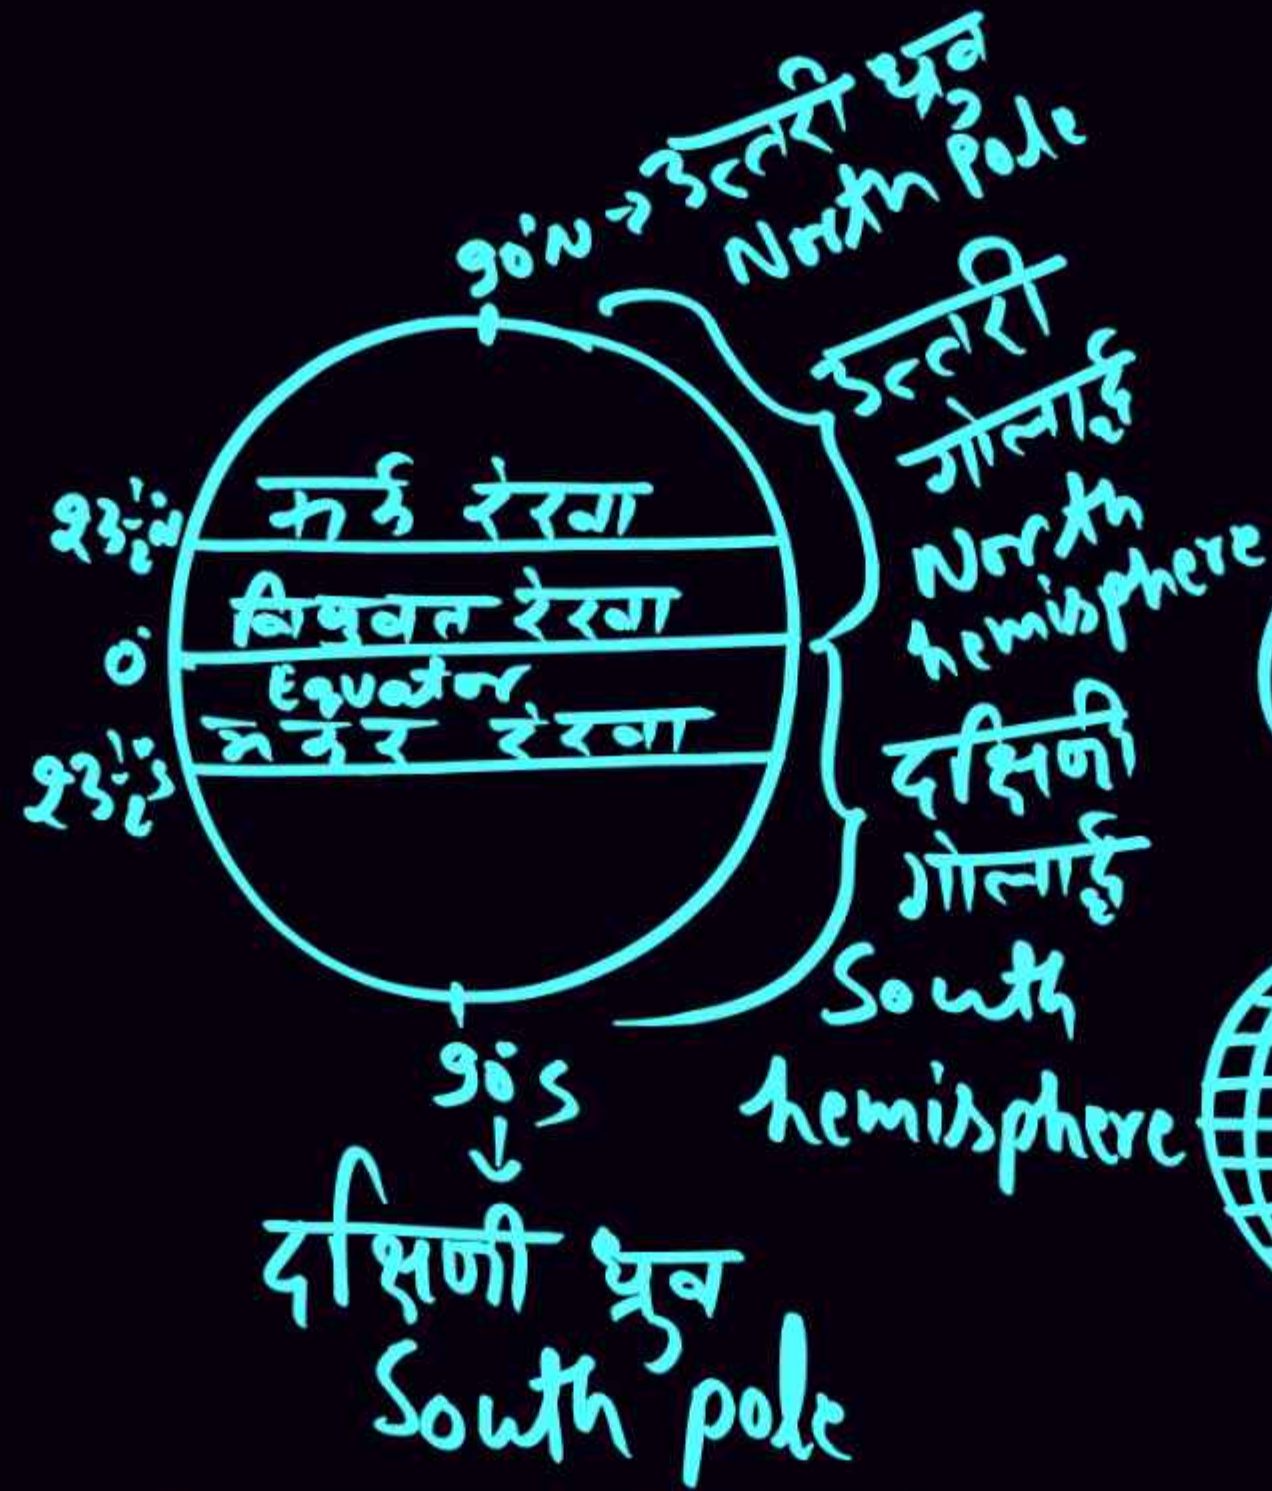 90°N → उत्तरी ध्रुव
North Pole
उत्तरी
गोलार्द्ध
North
hemisphere
23½°N
कर्क रेखा
0°
विषुवत रेखा
Equator
23½°S
मकर रेखा
दक्षिणी
गोलार्द्ध
South
hemisphere
90°S
↓
दक्षिणी ध्रुव
South pole